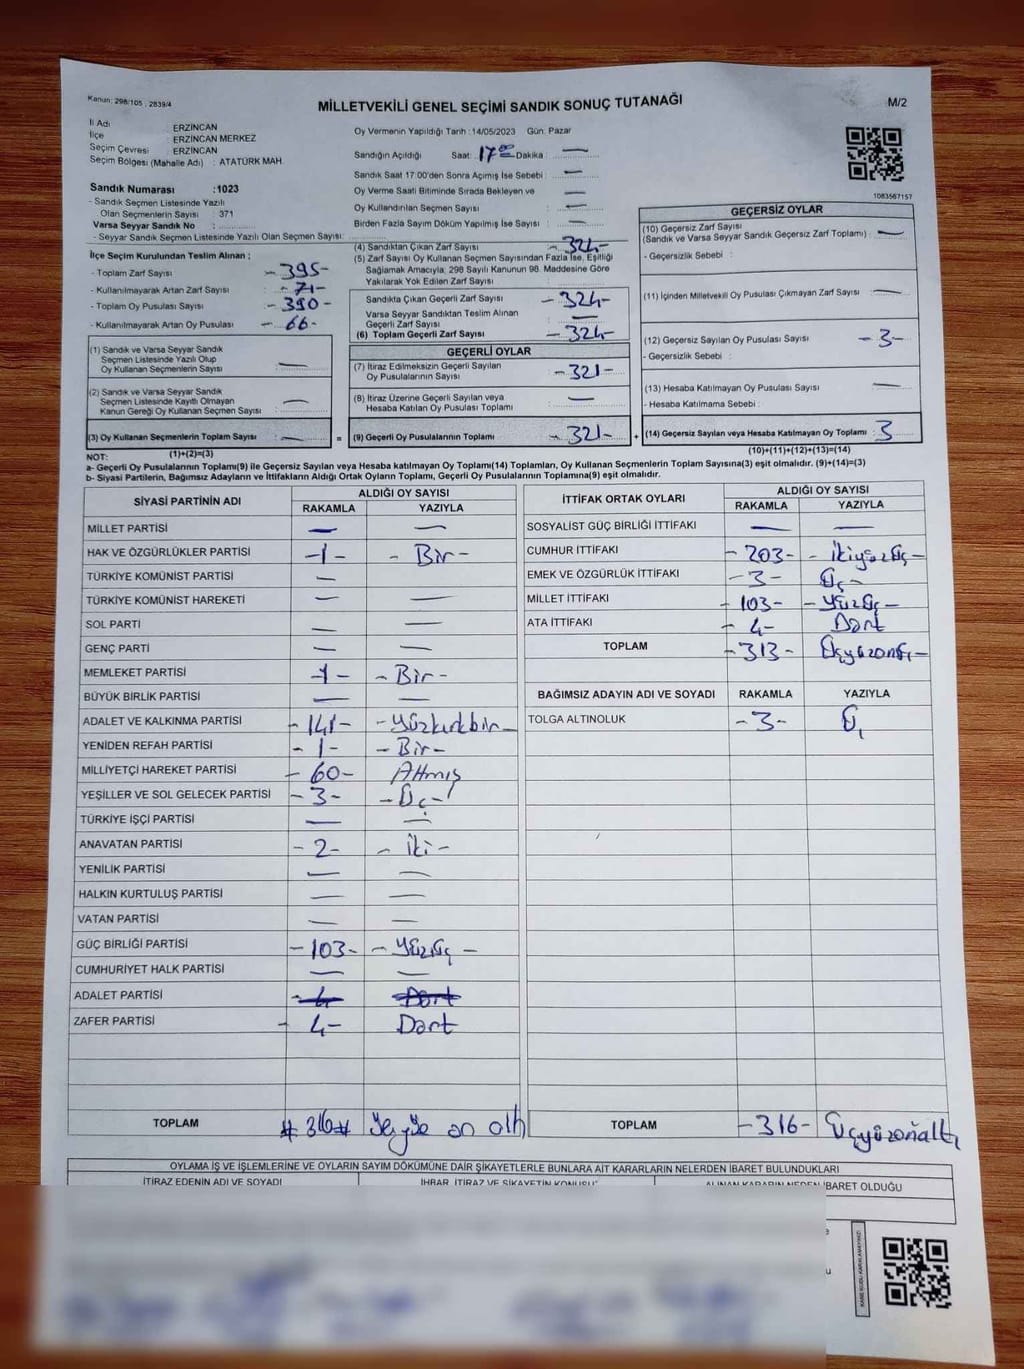 Kanun: 298/105 , 2839/4
MİLLETVEKİLİ GENEL SEÇİMİ SANDIK SONUÇ TUTANAĞI
M/2
İl Adı : ERZİNCAN
İlçe : ERZİNCAN MERKEZ
Seçim Çevresi : ERZİNCAN
Seçim Bölgesi (Mahalle Adı) : ATATÜRK MAH.
Sandık Numarası :1023
- Sandık Seçmen Listesinde Yazılı
Olan Seçmenlerin Sayısı : 371
Varsa Seyyar Sandık No :
- Seyyar Sandık Seçmen Listesinde Yazılı Olan Seçmen Sayısı:
Oy Vermenin Yapıldığı Tarih :14/05/2023 Gün: Pazar
Sandığın Açıldığı Saat: 17 00 Dakika : —
Sandık Saat 17:00'den Sonra Açımış İse Sebebi : —
Oy Verme Saati Bitiminde Sırada Bekleyen ve —
Oy Kullandırılan Seçmen Sayısı : —
Birden Fazla Sayım Döküm Yapılmış İse Sayısı : —
1083567157
İlçe Seçim Kurulundan Teslim Alınan ;
- Toplam Zarf Sayısı : - 395-
- Kullanılmayarak Artan Zarf Sayısı : - 71-
- Toplam Oy Pusulası Sayısı : - 390-
- Kullanılmayarak Artan Oy Pusulası : - 66-
(1) Sandık ve Varsa Seyyar Sandık
Seçmen Listesinde Yazılı Olup
Oy Kullanan Seçmenlerin Sayısı : —
(2) Sandık ve Varsa Seyyar Sandık
Seçmen Listesinde Kayıtlı Olmayan
Kanun Gereği Oy Kullanan Seçmen Sayısı : —
(3) Oy Kullanan Seçmenlerin Toplam Sayısı : — =
(1)+(2)=(3)
(4) Sandıktan Çıkan Zarf Sayısı : - 324-
(5) Zarf Sayısı Oy Kullanan Seçmen Sayısından Fazla İse, Eşitliği
Sağlamak Amacıyla; 298 Sayılı Kanunun 98. Maddesine Göre
Yakılarak Yok Edilen Zarf Sayısı :
Sandıkta Çıkan Geçerli Zarf Sayısı : - 324-
Varsa Seyyar Sandıktan Teslim Alınan
Geçerli Zarf Sayısı : —
(6) Toplam Geçerli Zarf Sayısı : - 324-
GEÇERLİ OYLAR
(7) İtiraz Edilmeksizin Geçerli Sayılan
Oy Pusulalarının Sayısı : -321-
(8) İtiraz Üzerine Geçerli Sayılan veya
Hesaba Katılan Oy Pusulası Toplamı : —
(9) Geçerli Oy Pusulalarının Toplamı : - 321- +
GEÇERSİZ OYLAR
(10) Geçersiz Zarf Sayısı
(Sandık ve Varsa Seyyar Sandık Geçersiz Zarf Toplamı) : —
- Geçersizlik Sebebi :
(11) İçinden Milletvekili Oy Pusulası Çıkmayan Zarf Sayısı : —
(12) Geçersiz Sayılan Oy Pusulası Sayısı : -3-
- Geçersizlik Sebebi :
(13) Hesaba Katılmayan Oy Pusulası Sayısı : —
- Hesaba Katılmama Sebebi :
(14) Geçersiz Sayılan veya Hesaba Katılmayan Oy Toplamı : 3
(10)+(11)+(12)+(13)=(14)
NOT:
a- Geçerli Oy Pusulalarının Toplamı(9) ile Geçersiz Sayılan veya Hesaba katılmayan Oy Toplamı(14) Toplamları, Oy Kullanan Seçmenlerin Toplam Sayısına(3) eşit olmalıdır. (9)+(14)=(3)
b- Siyasi Partilerin, Bağımsız Adayların ve İttifakların Aldığı Ortak Oyların Toplamı, Geçerli Oy Pusulalarının Toplamına(9) eşit olmalıdır.
SİYASİ PARTİNİN ADI
ALDIĞI OY SAYISI
RAKAMLA YAZIYLA
MİLLET PARTİSİ — —
HAK VE ÖZGÜRLÜKLER PARTİSİ -1- - Bir -
TÜRKİYE KOMÜNİST PARTİSİ —
TÜRKİYE KOMÜNİST HAREKETİ — —
SOL PARTİ — —
GENÇ PARTİ — —
MEMLEKET PARTİSİ -1- - Bir -
BÜYÜK BİRLİK PARTİSİ — —
ADALET VE KALKINMA PARTİSİ - 141- - Yüzkırkbir -
YENİDEN REFAH PARTİSİ - 1- - Bir -
MİLLİYETÇİ HAREKET PARTİSİ - 60- Altmış
YEŞİLLER VE SOL GELECEK PARTİSİ - 3- - Üç -
TÜRKİYE İŞÇİ PARTİSİ — —
ANAVATAN PARTİSİ - 2- - İki -
YENİLİK PARTİSİ — —
HALKIN KURTULUŞ PARTİSİ — —
VATAN PARTİSİ — —
GÜÇ BİRLİĞİ PARTİSİ - 103- - Yüzüç -
CUMHURİYET HALK PARTİSİ — —
ADALET PARTİSİ - 4- Dört
ZAFER PARTİSİ - 4- Dört
TOPLAM # 316 #
İTTİFAK ORTAK OYLARI
ALDIĞI OY SAYISI
RAKAMLA YAZIYLA
SOSYALİST GÜÇ BİRLİĞİ İTTİFAKI — —
CUMHUR İTTİFAKI - 203- - İkiyüzüç -
EMEK VE ÖZGÜRLÜK İTTİFAKI - 3- Üç -
MİLLET İTTİFAKI - 103- - Yüzüç -
ATA İTTİFAKI - 4- Dört
TOPLAM - 313 - Üçyüzonüç -
BAĞIMSIZ ADAYIN ADI VE SOYADI RAKAMLA YAZIYLA
TOLGA ALTINOLUK - 3- Üç
TOPLAM -316- Üçyüzonaltı
OYLAMA İŞ VE İŞLEMLERİNE VE OYLARIN SAYIM DÖKÜMÜNE DAİR ŞİKAYETLERLE BUNLARA AİT KARARLARIN NELERDEN İBARET BULUNDUKLARI
İTİRAZ EDENİN ADI VE SOYADI İHBAR, İTİRAZ VE ŞİKAYETİN KONUSU ALINAN KARARIN NEDEN İBARET OLDUĞU